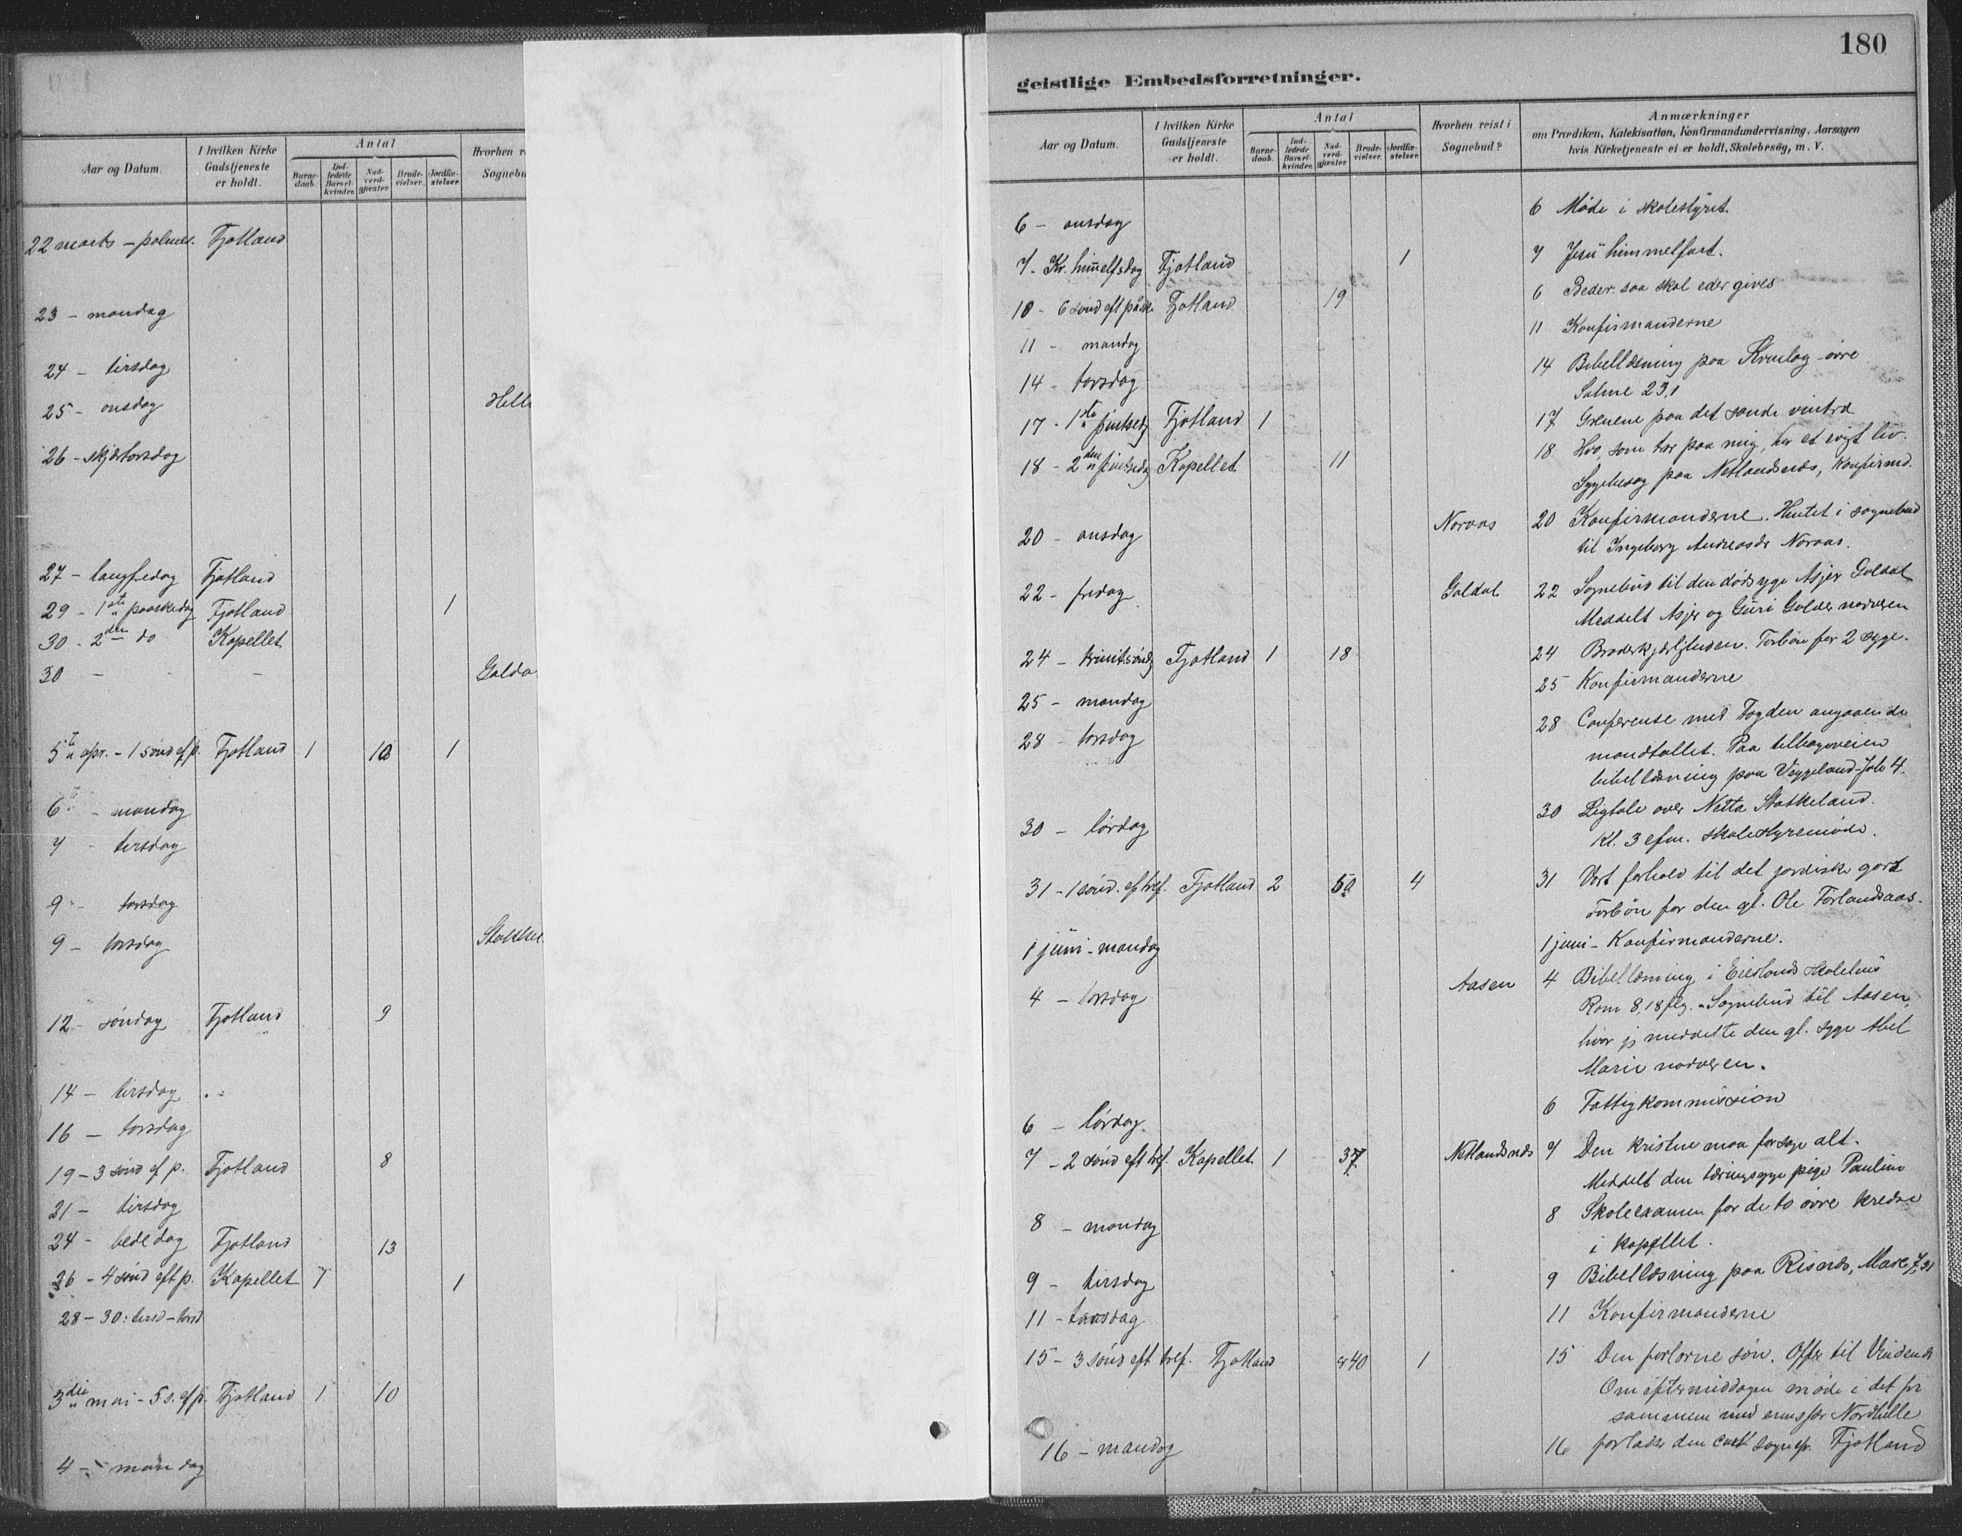 Aar og Datum.
I hvilken Kirke Gudstjeneste er holdt.
Antal
Barnedaab.
Indledede Barselkvinder.
Nadverdgjæster
Brudevielser.
Jordfæstelser
Hvorhen re
Sognebu
22 marts – palmes. Fjotland
23 – mandag
24 – tirsdag
25 – onsdag Helle
26 – skjærtorsdag
27 – langfredag Fjotland
29 – 1ste paaskedag Fjotland 1
30 - 2den do Kapellet
30 – - – Galda
5te apr. – 1 sønd ef p. Fjotland 1 10 1
6te – mandag
7 – tirsdag
9 – torsdag
9 – torsdag
12 – søndag Fjotland 9
14 – tirsdag
16 – torsdag
19 – 3 sønd ef p. Fjotland 8
21 – tirsdag
24 – bededag Fjotland 13
26 – 4 sønd eft p. Kapellet 1 1
28 – 30: tirsd – torsd
3die mai – 5 s. ef p. Fjotland 1 10
4 – mandag
180
geistlige Embedsforretninger.
Aar og Datum.
I hvilken Kirke Gudstjeneste er holdt.
Antal
Barnedaab.
Indledede Barselkvinder.
Nadverdgjæster
Brudevielser.
Jordfæstelser
Hvorhen reist i Sognebud?
Anmærkninger
om Prædiken, Katekisation, Konfirmandundervisning, Aarsagen
hvis Kirketjeneste ei er holdt, Skolebesøg, m. V.
6 – onsdag 6 Møde i skolestyret.
7 - Kr. himelfsdag Fjotland 1 7 Jesu himmelfart.
10 - 6 sønd eft påsk. Fjotland 19 6 Beder, saa skal eder gives
11 – mandag 11 Konfirmanderne
14 – torsdag 14 Bibellæsning paa Kvinlog øvre
Salme 23,1
17 - 1ste pintsed. Fjotland 1 17 Grenene paa det sande vintræ
18 - 2den pintsedag Kapellet 11 18 Hvo, som tror paa mig, har et evigt liv.
Sygebesøg paa Netlandsnæs, Konfirmd.
20 – onsdag Noraas 20 Konfirmanderne. Hentet i sognebud
til Ingeborg Andreasdr Noraas.
22 – fredag Galdal 22 Sognebud til den dødssyge Asjer Galdal
Meddelt Asjer og Guri Galdal nadveren
24 – trinit.sønd. Fjotland 1 18 24 Broderkjærligheden. Forbøn for 2 syge.
25 – mandag 25 Konfirmanderne
28 – torsdag 28 Conferense med Fogden angaaende
mandtallet. Paa tilbageveien
bibellæsning paa Veggeland – Joh 4.
30 – lørdag 30 Ligtale over Netta Stakkeland.
Kl. 3 efm. skolestyremøde.
31 – 1 sønd. ef tref. Fjotland 2 50 4 31 Vort forhold til det jordiske gods
Forbøn for den gl. Ole Førlandsaas.
1 juni – mandag 1 juni – Konfirmanderne.
4 – torsdag Aasen 4 Bibellæsning i Eieslands skolehus
Rom 8,18 flg. – Sognebud til Aasen,
hvor jg meddelte den gl. syge Abel
Marie nadveren.
6 – lørdag 6 Fattigkommission
7 – 2 sønd eft tref. Kapellet 1 37 Netlandsnæs 7 Den kristne maa forsage alt.
Meddelt den tæringssyge pige Pauline
8 – mandag 8 Skoleexamen for de to øvre kredse
i kapellet.
9 – tirsdag 9 Bibellæsning paa Risnæs, Marc 7,31
11 – torsdag 11 Konfirmanderne
15 – 3 sønd eft tref. Fjotland 40 1 15 Den forlorne søn. Offer til
Om eftermiddagen møde i det fr
sammene med Nordhelle
16 – mandag 16 forlader den sognepr. Fjotland